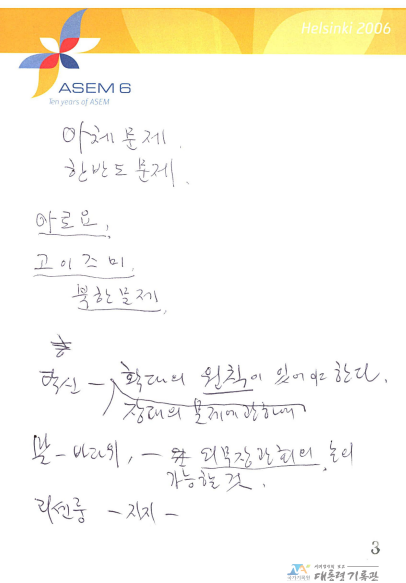 Helsinki 2006
ASEM 6
Ten years of ASEM
아체 문제.
한반도 문제.
아로요,
고이즈미,
북한문제,
확산 - 확대의 원칙이 있어야 한다.
장대의 문제에 관하여
말 - 바다위, - 외무장관회의 논의
가능할 것.
리센룽 - 지지 -
3
국가기록원
대통령기록관